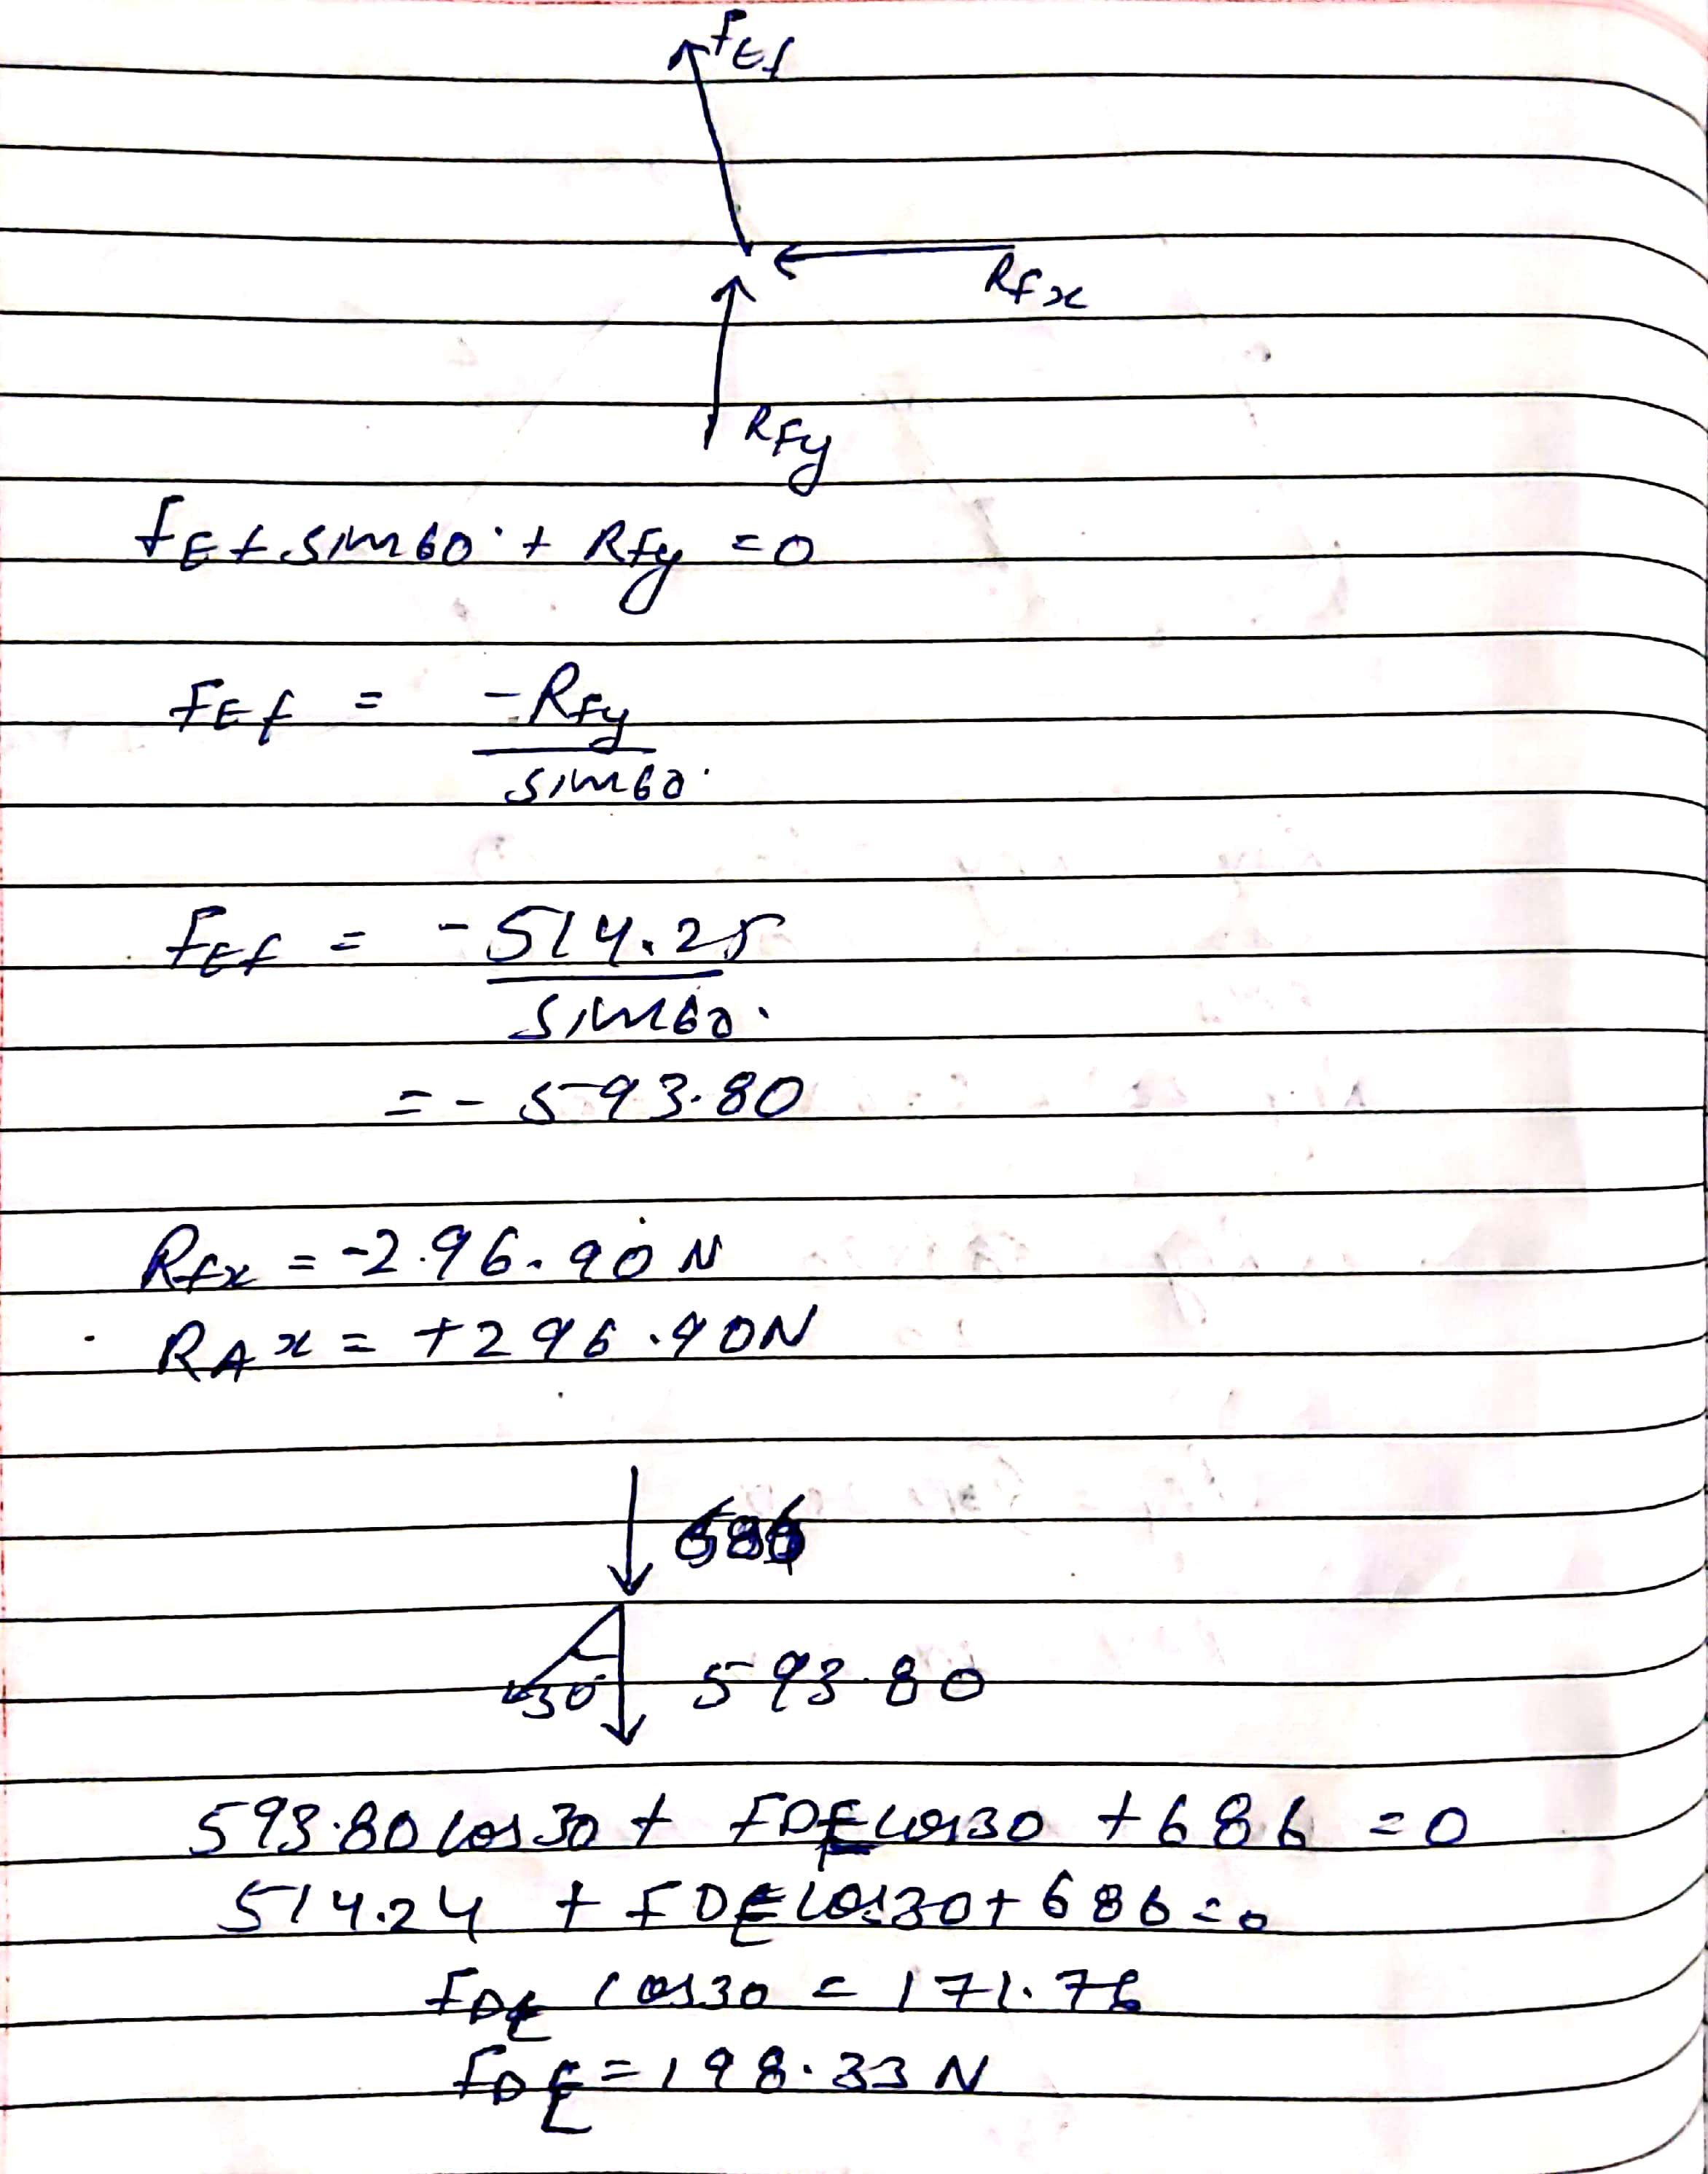 FEf
Rfx
RFy
fEf sin60° + Rfy = 0
FEf = -Rfy
sin60°
fEf = -514.25
sin60°
= - 593.80
Rfx = -296.90 N
RAx = +296.90N
686
30° 593.80
593.80 cos30 + FDE cos30 + 686 = 0
514.24 + FDE cos30 + 686 = 0
FDE cos30 = 171.76
FDE = 198.33 N